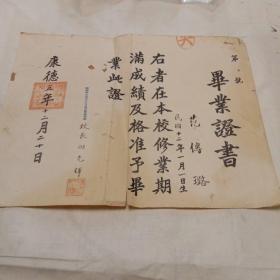 第 號
畢業證書
范傳璐
民國十二年一月一日生
右者在本校修業期
滿成績及格准予畢
業此證
校長
康德五年十二月二十日